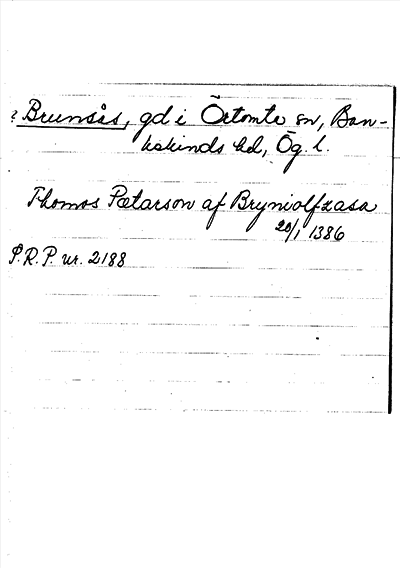 ? Brunsås, gd i Örtomta sn, Ban-
kekinds hd, Ög. l.
Thomos Pætarson af Bryniolfzasa
20/1 1386
P.R.P. nr. 2188